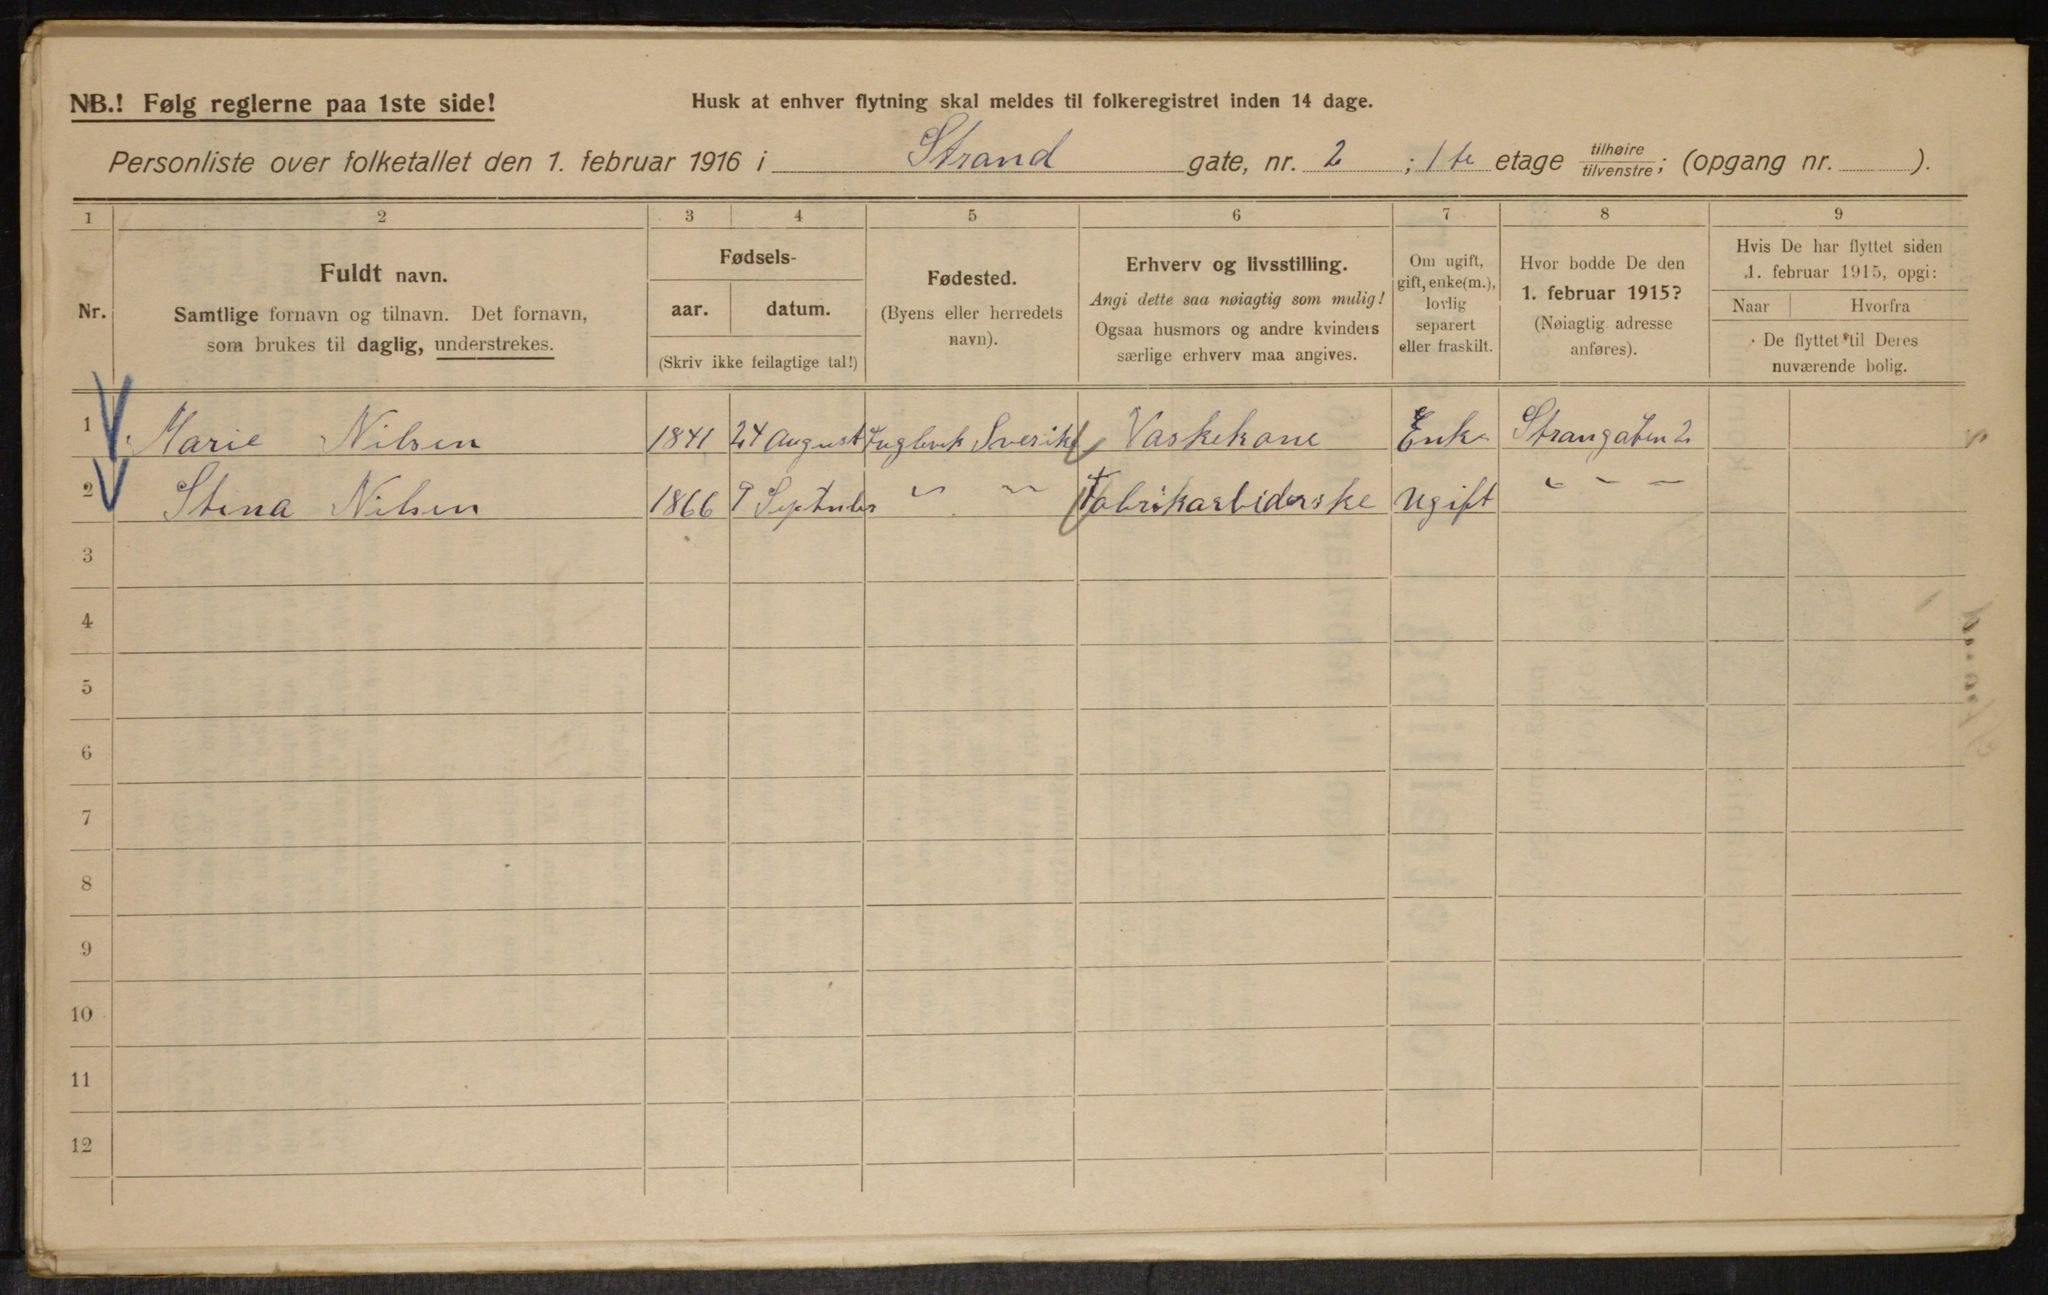 NB.! Følg reglerne paa 1ste side!
Husk at enhver flytning skal meldes til folkeregistret inden 14 dage.
Personliste over folketallet den 1. februar 1916 i Strand gate, nr. 2 ; 1 te etage tilhøire tilvenstre; (opgang nr. ).
1 2 3 4 5 6 7 8 9
Nr.
Fuldt navn.
Samtlige fornavn og tilnavn. Det fornavn,
som brukes til daglig, understrekes.
Fødsels-
aar. datum.
(Skriv ikke feilagtige tal!)
Fødested.
(Byens eller herredets
navn).
Erhverv og livsstilling.
Angi dette saa nøiagtig som mulig!
Ogsaa husmors og andre kvinders
særlige erhverv maa angives.
Om ugift,
gift, enke(m.),
lovlig
separert
eller fraskilt.
Hvor bodde De den
1. februar 1915?
(Nøiagtig adresse
anføres).
Hvis De har flyttet siden
1. februar 1915, opgi:
Naar Hvorfra
De flyttet til Deres
nuværende bolig.
1 Marie Nilsen 1841 24 August Sverike Vaskekone Enke Strangaten 2
2 Stina Nilsen 1866 September " " Fabrikarbiderske Ugift " " "
3
4
5
6
7
8
9
10
11
12